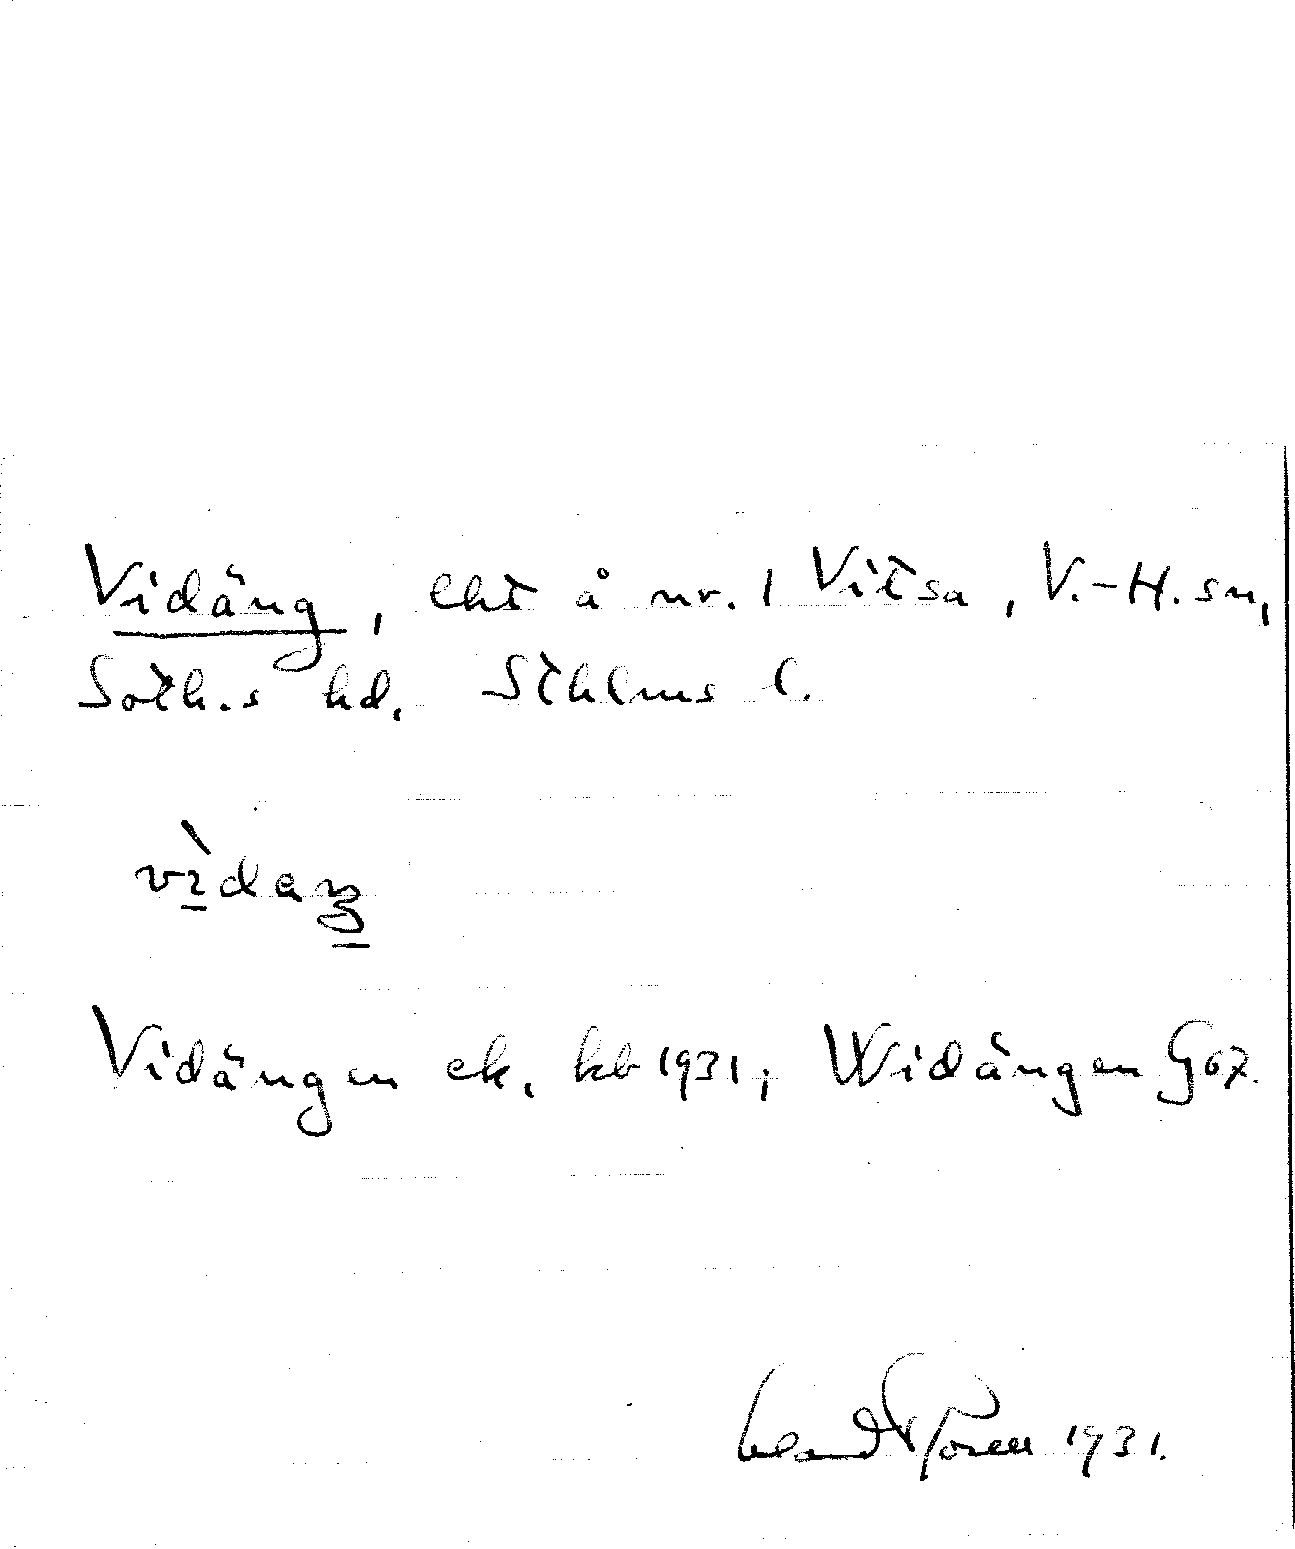 Vidäng, lht å nr. 1 Vitsa, V.-H. sn,
Soth.s hd. Sthlms l.
Vidängen ek. kb 1931; Widängen G07.
1931.